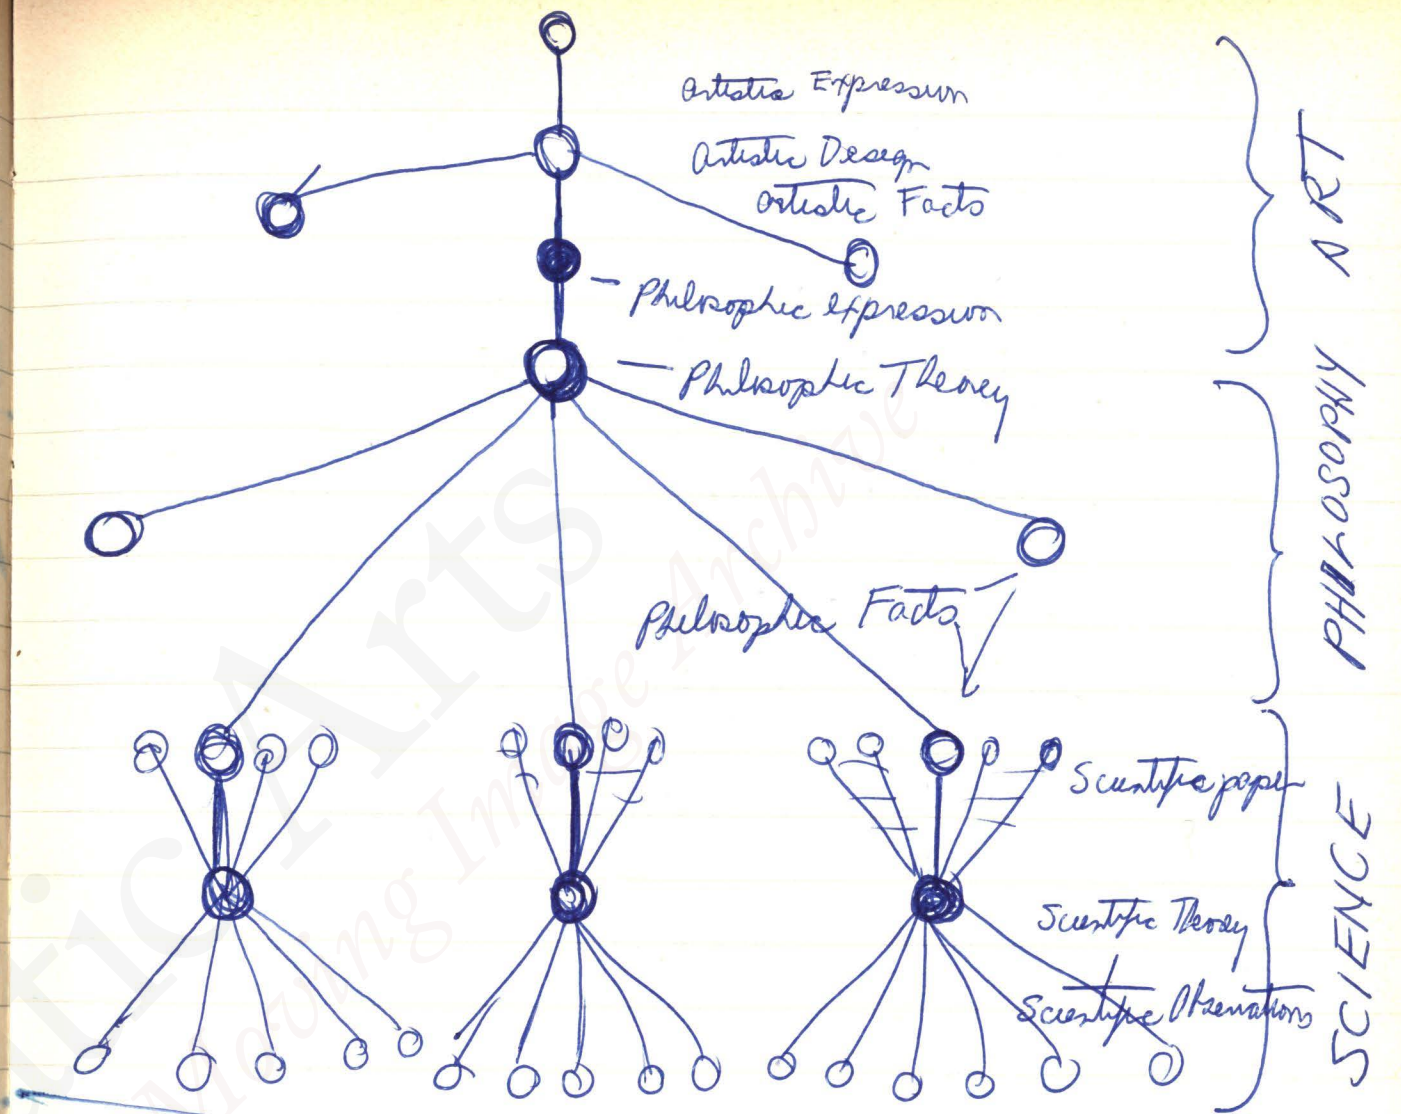 Artistic Expression
Artistic Design
Artistic Facts
Philosophic expression
Philosophic Theory
Philosophic Facts
Scientific paper
Scientific Theory
Scientific Observations
ART
PHILOSOPHY
SCIENCE
Arts
Moving Image Archive